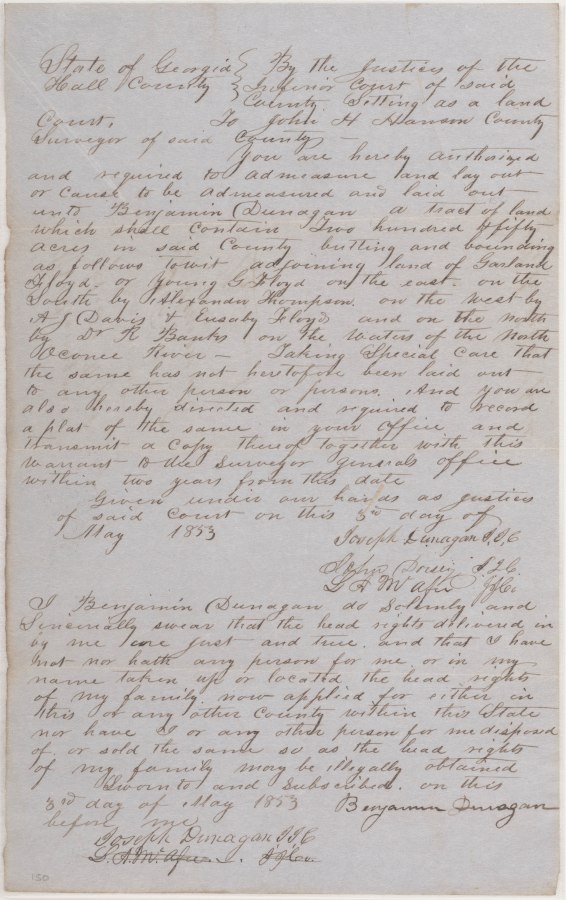 State of Georgia } By the Justices of the
Hall County } Inferior Court of said
County. Sitting as a land
Court, To John H Hanson County
Surveyor of said County —
You are hereby authorized
and required to admeasure and lay out
or cause to be admeasured and laid out
unto Benjamin Dunagan a tract of land
which shall contain Two hundred & fifty
acres in said County butting and bounding
as follows towit adjoining land of Garland
Floyd or Young G Floyd on the east on the
South by Alexander Thompson. on the west by
A J Davis & Eusaby Floyd and on the north
by Dr R Banks on the waters of the North
Oconee River — Taking Special Care that
the same has not heretofore been laid out
to any other person or persons. And you are
also hereby directed and required to record
a plat of the same in your office and
transmit a copy thereof together with this
warrant to the Surveyor Generals office
within two years from this date
Given under our hands as Justices
of said Court on this 3rd day of
May 1853 Joseph Dunagan J.I.C
John Dorsey J.I.C.
J.I.C.
I Benjamin Dunagan do Solemly and
Sincerially swear that the head rights delivered in
by me are Just and true. and that I have
not nor hath any person for me or in my
name taken up or located the head rights
of my family now applied for either in
this or any other County within this State
nor have I or any other person for me disposed
of or sold the same so as the head rights
of my family may be illegally obtained
Sworn to and Subscribed. on this
3rd day of May 1853 Benjamin Dunagan
before me
Joseph Dunagan J.I.C
150